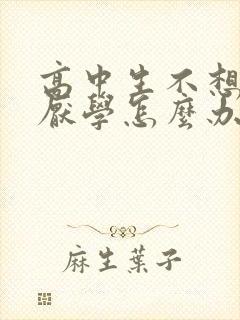 高中生不想
厭學怎麼办
麻生葉子